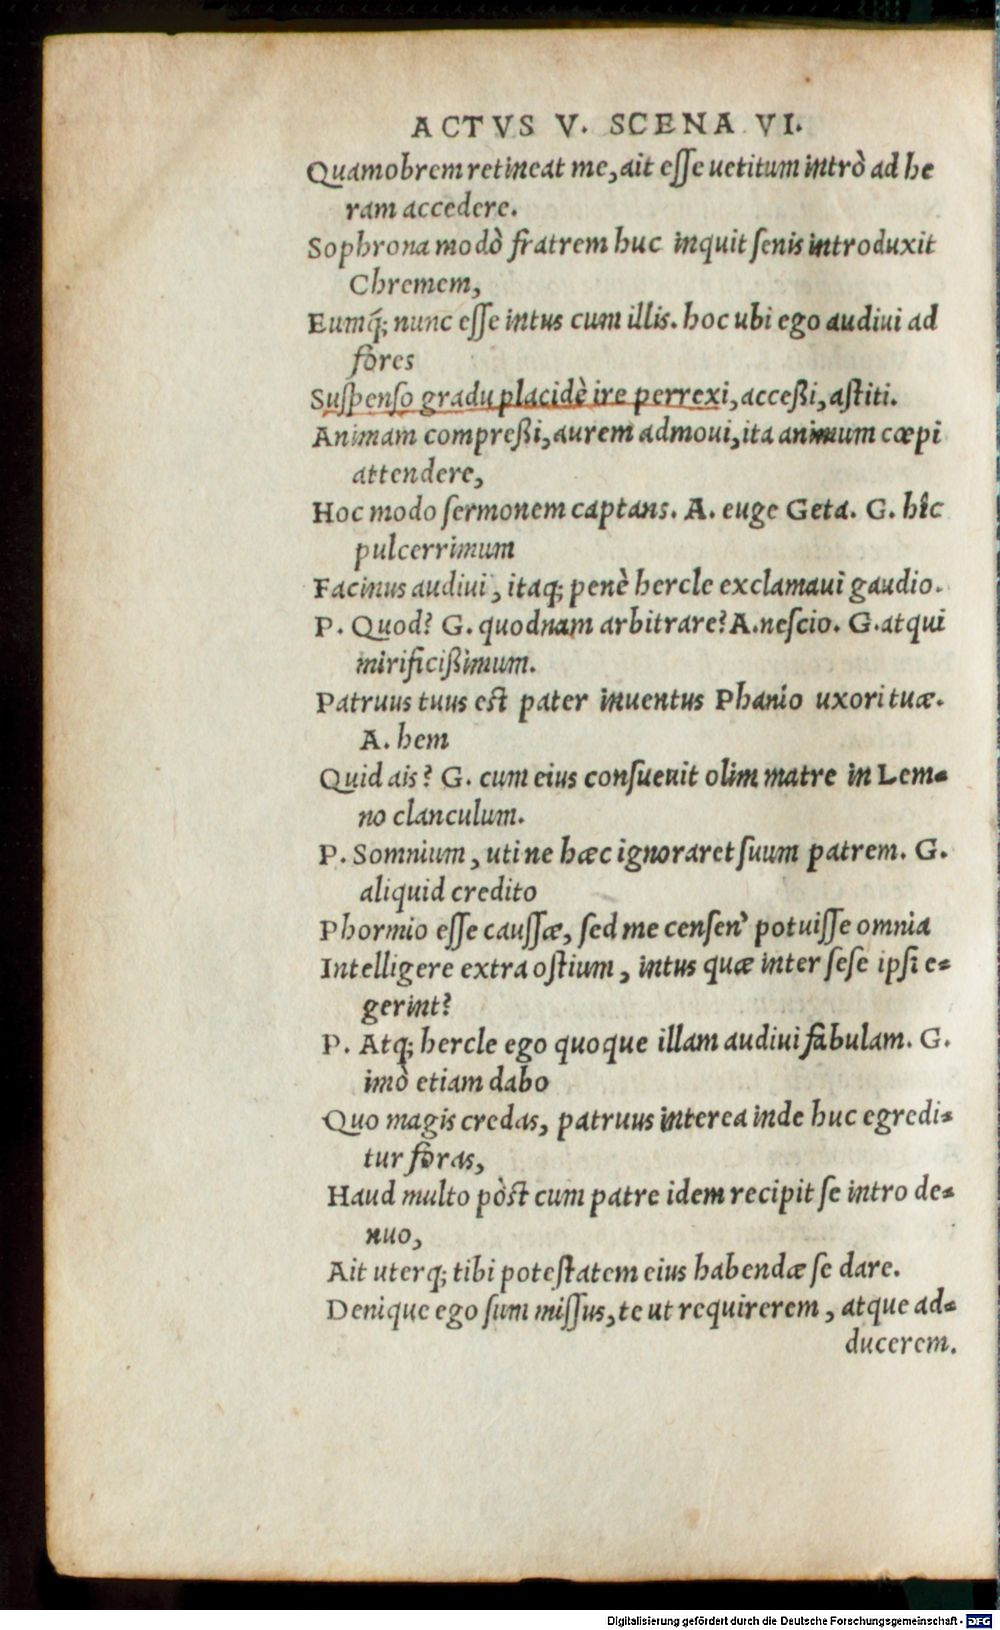 ACTVS V. SCENA VI.
Quamobrem retineat me, ait eſſe uetitum intrò ad he
ram accedere.
Sophrona modò fratrem huc inquit ſenis introduxit
Chremem,
Eumq́; nunc eſſe intus cum illis. hoc ubi ego audiui ad
fores
Suſpenſo gradu placidè ire perrexi, acceßi, aſtiti.
Animam compreßi, aurem admoui, ita animum cœpi
attendere,
Hoc modo ſermonem captans. A. euge Geta. G. hîc
pulcerrimum
Facinus audiui, itaq; penè hercle exclamaui gaudio.
P. Quod? G. quodnam arbitrare? A. neſcio. G. atqui
mirificißimum.
Patruus tuus eſt pater inuentus Phanio uxori tuæ.
A. hem
Quid ais? G. cum eius conſueuit olim matre in Lem-
no clanculum.
P. Somnium, uti ne hæc ignoraret ſuum patrem. G.
aliquid credito
Phormio eſſe cauſſæ, ſed me cenſen' potuiſſe omnia
Intelligere extra oſtium, intus quæ inter ſeſe ipſi e-
gerint?
P. Atq; hercle ego quoque illam audiui fabulam. G.
imò etiam dabo
Quo magis credas, patruus interea inde huc egredi-
tur foras,
Haud multo pòſt cum patre idem recipit ſe intro de-
nuo,
Ait uterq; tibi poteſtatem eius habendæ ſe dare.
Denique ego ſum miſſus, te ut requirerem, atque ad-
ducerem.
Digitalisierung gefördert durch die Deutsche Forschungsgemeinschaft - DFG